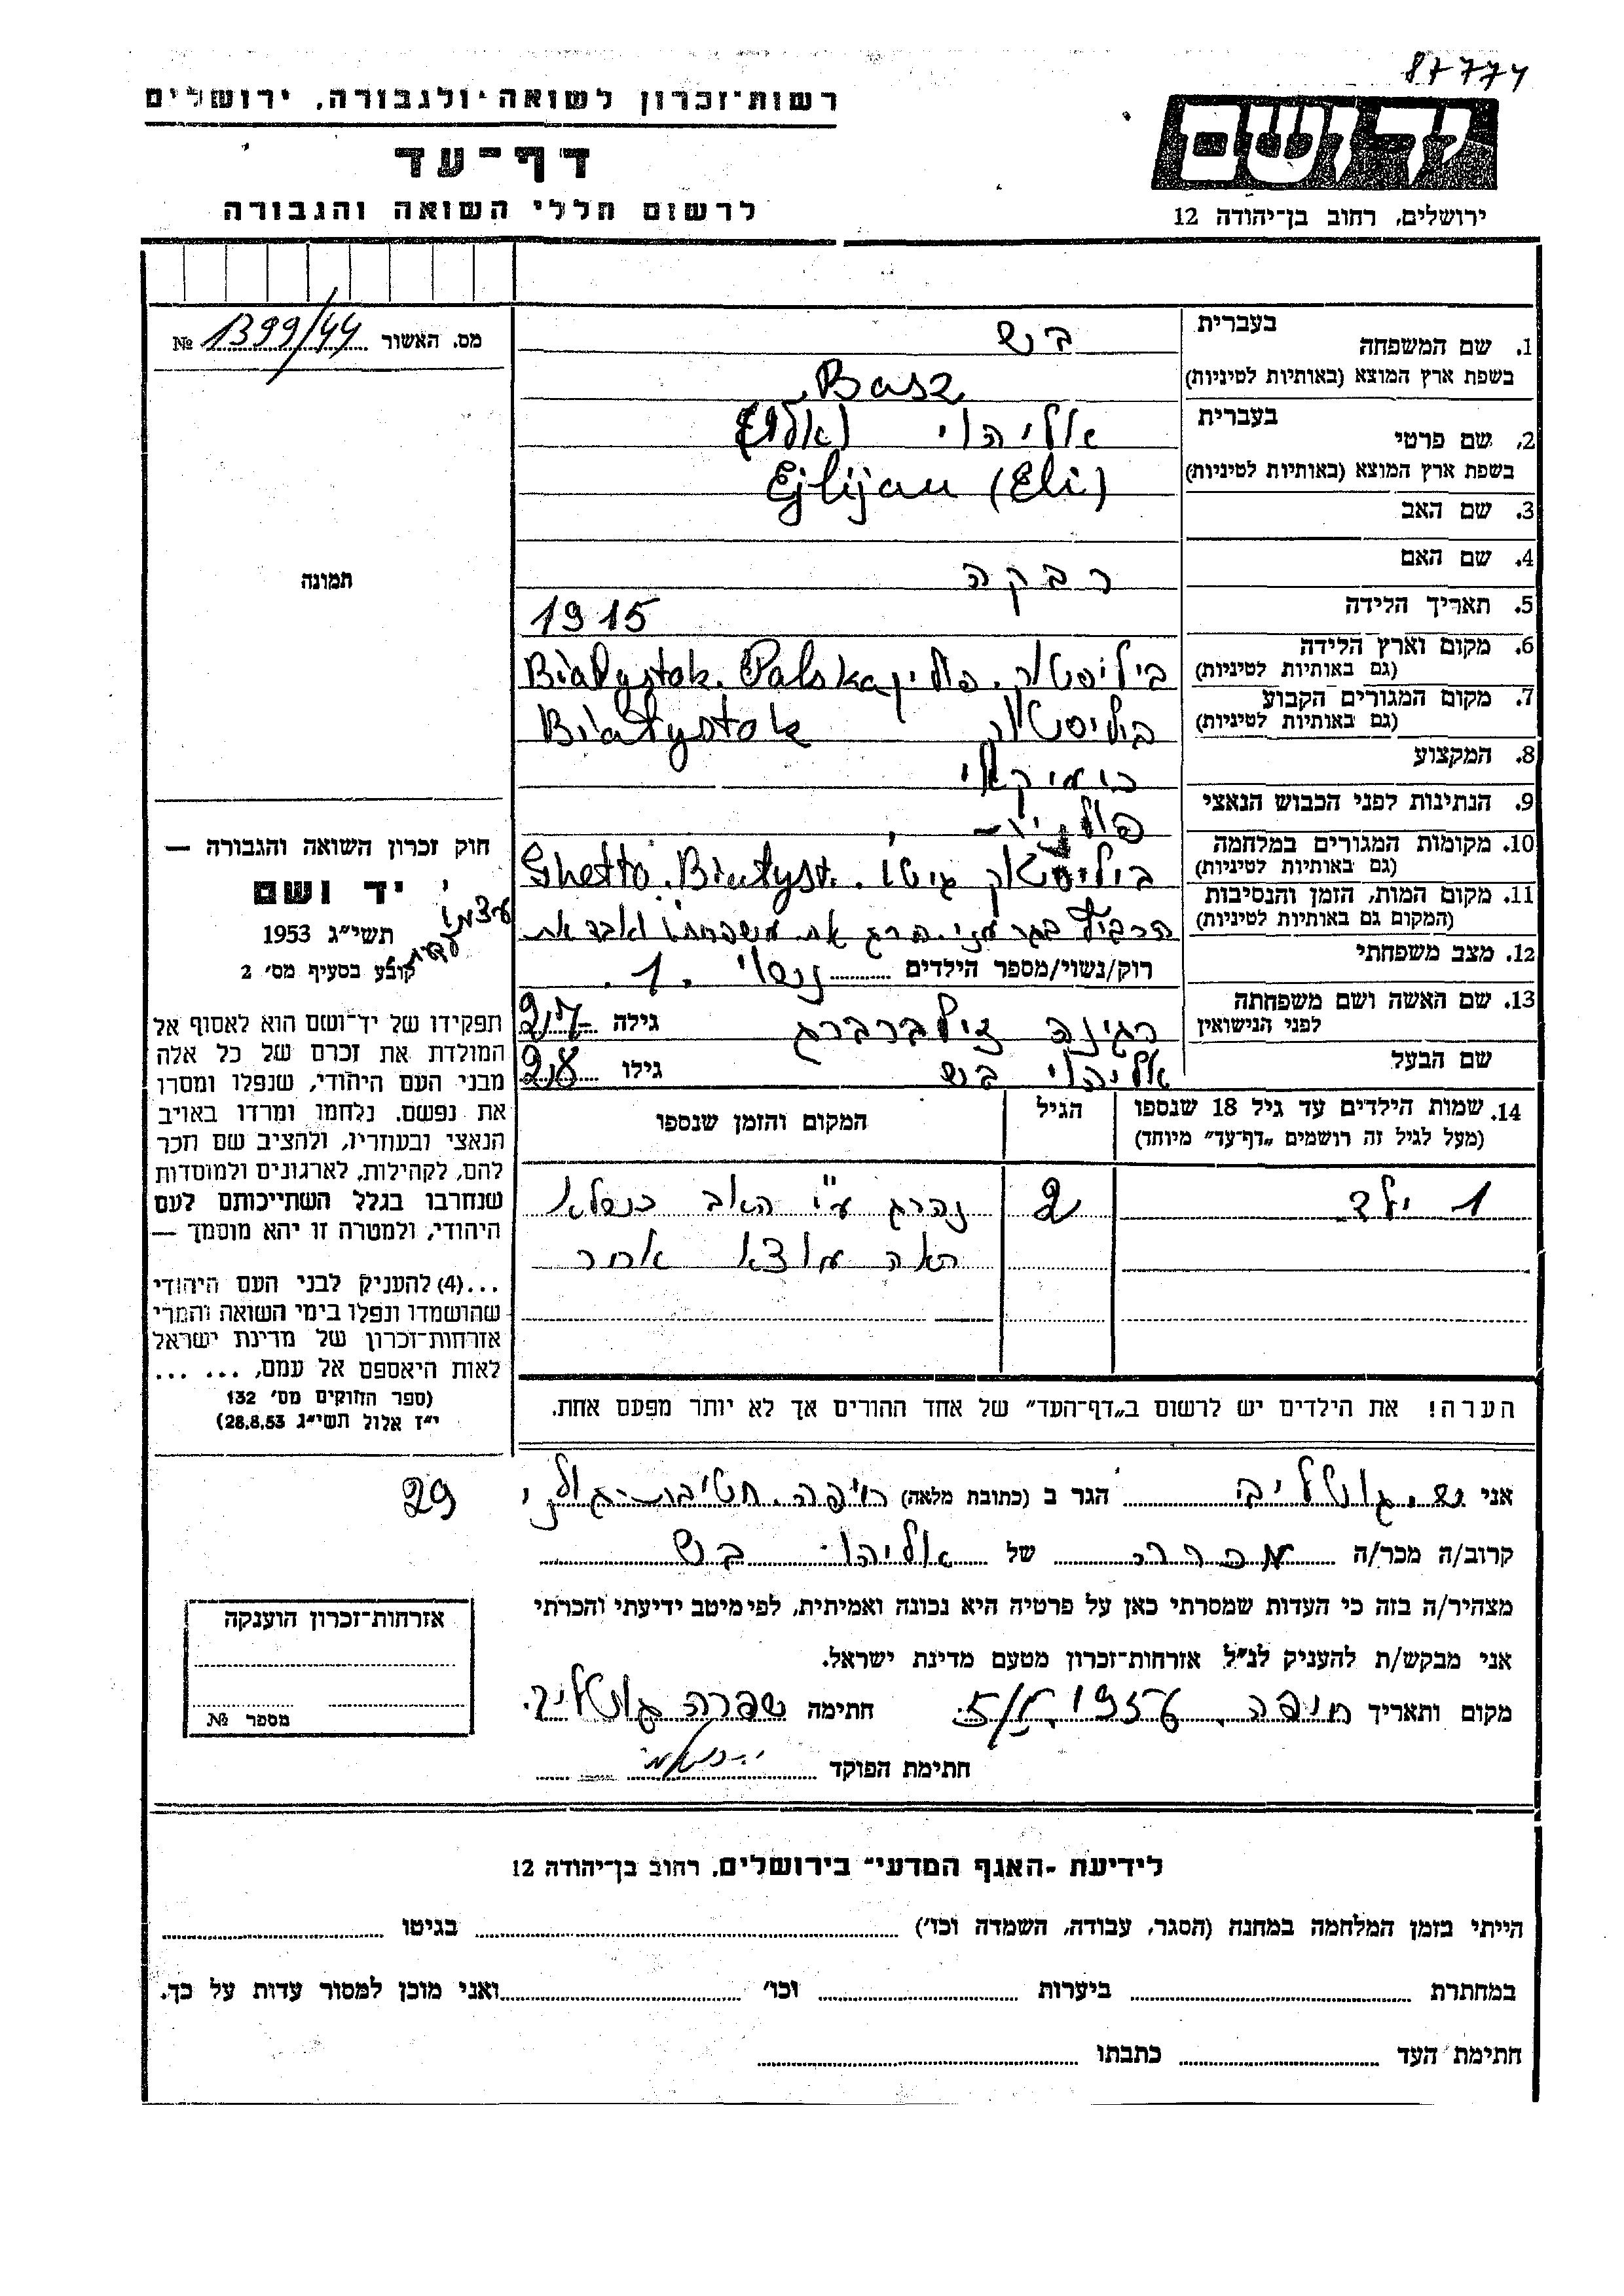 87774
רשות־זכרון לשואה ולגבורה, ירושלים
דף־עד
לרשום חללי השואה והגבורה
יד ושם
ירושלים, רחוב בן־יהודה 12
מס. האשור 1399/44 №
תמונה
1. שם המשפחה בעברית בש
בשפת ארץ המוצא (באותיות לטיניות) Basz
2. שם פרטי בעברית אליהו
בשפת ארץ המוצא (באותיות לטיניות) Ejlijau (Eli)
3. שם האב
4. שם האם רבקה
5. תאריך הלידה 1915
6. מקום וארץ הלידה
(גם באותיות לטיניות) ביליסטוק. פולין Białystok. Polska
7. מקום המגורים הקבוע
(גם באותיות לטיניות) ביליסטוק Białystok
8. המקצוע כימיקאי
9. הנתינות לפני הכבוש הנאצי פולנית
10. מקומות המגורים במלחמה
(גם באותיות לטיניות) ביליסטוק גיטו. Ghetto. Białyst.
11. מקום המות, הזמן והנסיבות
(המקום גם באותיות לטיניות) הרג את משפחתו ואבד את
עצמו
12. מצב משפחתי רוק/נשוי/מספר הילדים נשוי 1.
13. שם האשה ושם משפחתה
לפני הנישואין רגינה זילברברג גילה 27
שם הבעל אליהו בש גילו 28
14. שמות הילדים עד גיל 18 שנספו
(מעל לגיל זה רושמים „דף־עד" מיוחד)
הגיל
המקום והזמן שנספו
1 ילד 2 נהרג ע"י האב כשלא
ראה מוצא אחר
הערה! את הילדים יש לרשום ב„דף־העד" של אחד ההורים אך לא יותר מפעם אחת.
חוק זכרון השואה והגבורה —
יד ושם
תשי״ג 1953
קובע בסעיף מס׳ 2
תפקידו של יד־ושם הוא לאסוף אל
המולדת את זכרם של כל אלה
מבני העם היהודי, שנפלו ומסרו
את נפשם, נלחמו ומרדו באויב
הנאצי ובעוזריו, ולהציב שם וזכר
להם, לקהילות, לארגונים ולמוסדות
שנחרבו בגלל השתייכותם לעם
היהודי, ולמטרה זו יהא מוסמך —
...(4) להעניק לבני העם היהודי
שהושמדו ונפלו בימי השואה והמרי
אזרחות־זכרון של מדינת ישראל
לאות היאספם אל עמם, ... ...
(ספר החוקים מס׳ 132
י״ז אלול תשי״ג 28.8.53)
אני ש. גוטליב הגר ב (כתובת מלאה) חיפה. חטיבת־גולני 29
קרוב/ה מכר/ה מכרה של אליהו בש
מצהיר/ה בזה כי העדות שמסרתי כאן על פרטיה היא נכונה ואמיתית, לפי מיטב ידיעתי והכרתי
אני מבקש/ת להעניק לנ״ל אזרחות־זכרון מטעם מדינת ישראל.
מקום ותאריך חיפה חתימה שפרה גוטליב
חתימת הפוקד
אזרחות־זכרון הוענקה
מספר №
לידיעת ״האגף המדעי״ בירושלים, רחוב בן־יהודה 12
הייתי בזמן המלחמה במחנה (הסגר, עבודה, השמדה וכו׳) בגיטו
במחתרת ביערות וכו׳ ואני מוכן למסור עדות על כך.
חתימת העד כתבתו